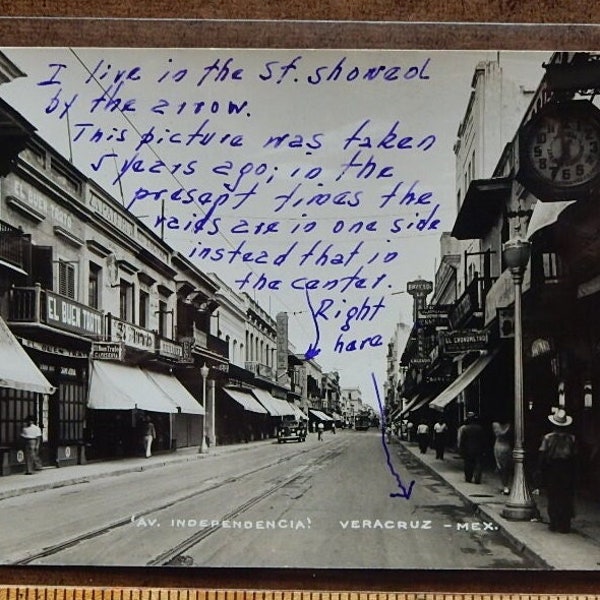 I live in the St. showed
by the arrow.
This picture was taken
5 years ago; in the
present times the
raies are in one side
instead that in
the center.
Right
here
EL BUEN TRATO
EL BUEN TRATO
EL CRONOMETRO
CALZADO
"AV. INDEPENDENCIA" VERACRUZ - MEX.